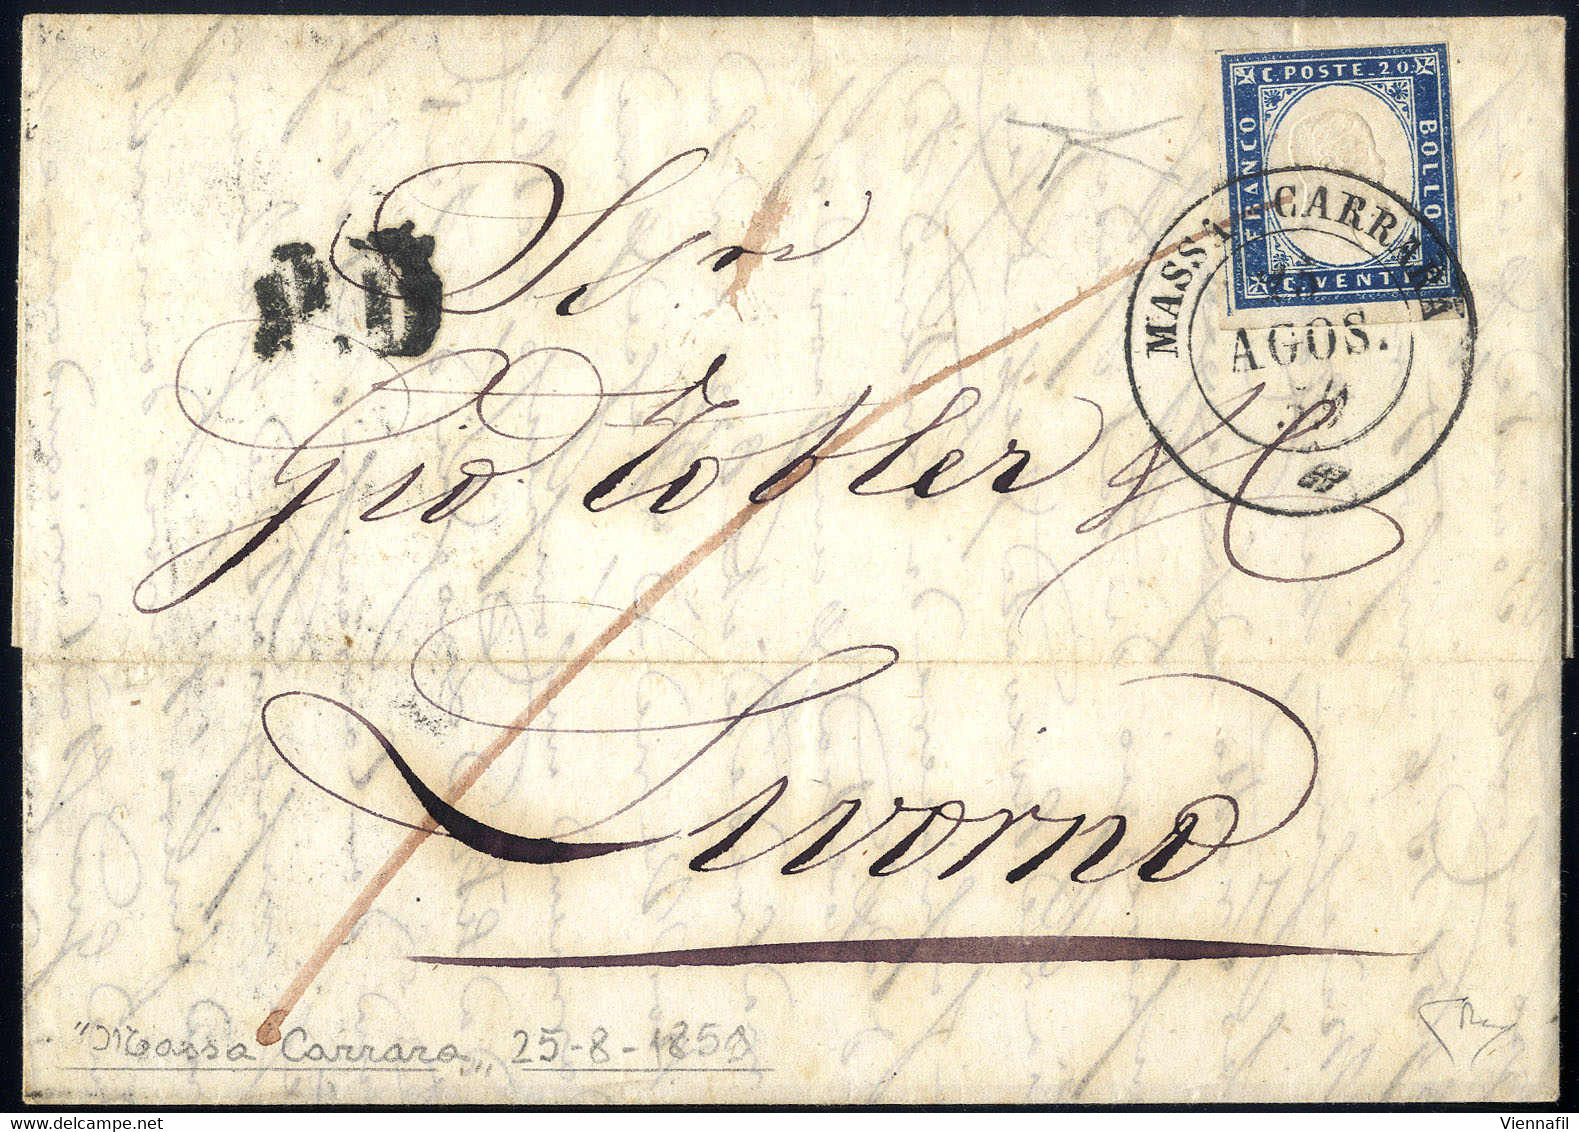 C. POSTE. 20.
FRANCO
BOLLO
C. VENTI
MASSA CARRARA
AGOS.
P.D
Sigri
Gio Tobler
Livorno
"Massa Carrara„ 25-8-1859
Viennafil